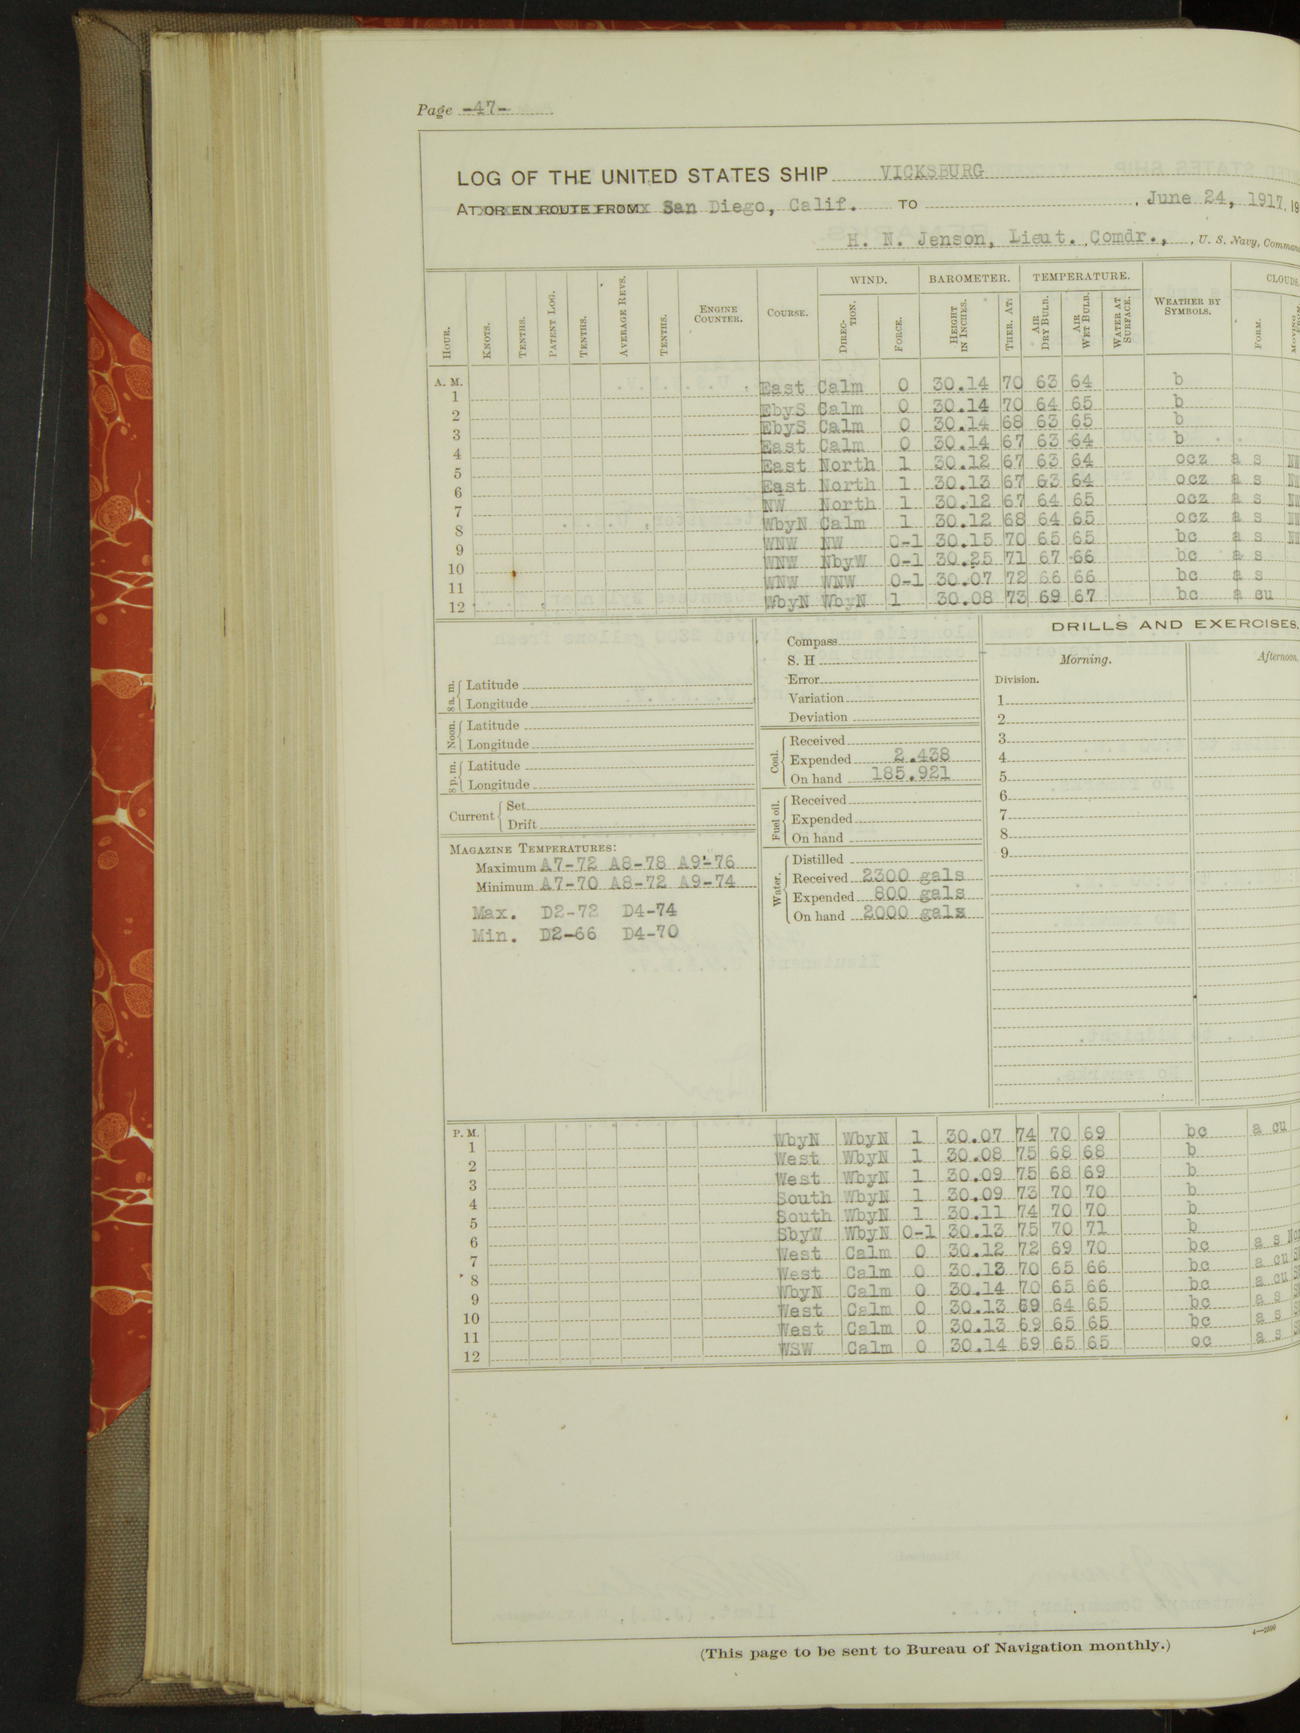 Page -47-
LOG OF THE UNITED STATES SHIP VICKSBURG
AT OR EN ROUTE FROM San Diego, Calif. TO , June 24, 1917, 19
H. N. Jenson, Lieut. Comdr., , U. S. Navy, Comman
WIND. BAROMETER. TEMPERATURE. CLOUDS.
HOUR. KNOTS. TENTHS. PATENT LOG. TENTHS. AVERAGE REVS. TENTHS. ENGINE COUNTER. COURSE. DIRECTION. FORCE. HEIGHT IN INCHES. THER. AT: AIR DRY BULB. AIR WET BULB. WATER AT SURFACE. WEATHER BY SYMBOLS. FORM. MOVING FROM
A. M.
1 East Calm 0 30.14 70 63 64 b
2 EbyS Calm 0 30.14 70 64 65 b
3 EbyS Calm 0 30.14 68 63 65 b
4 East Calm 0 30.14 67 63 64 b
5 East North 1 30.12 67 63 64 ocz a s
6 East North 1 30.13 67 63 64 ocz a s
7 NW North 1 30.12 67 64 65 ocz a s
8 WbyN Calm 1 30.12 68 64 65 ocz a s
9 WNW NW 0-1 30.15 70 65 65 bc a s
10 WNW NbyW 0-1 30.25 71 67 66 bc a s
11 WNW WNW 0-1 30.07 72 66 66 bc a s
12 WbyN WbyN 1 30.08 73 69 67 bc a cu
8 a. m. Latitude
Longitude
Noon. Latitude
Longitude
8 p. m. Latitude
Longitude
Current Set
Drift
MAGAZINE TEMPERATURES:
Maximum A7-72 A8-78 A9-76
Minimum A7-70 A8-72 A9-74
Max. D2-72 D4-74
Min. D2-66 D4-70
Compass
S. H
Error
Variation
Deviation
Coal. Received
Expended 2.438
On hand 185.921
Fuel oil. Received
Expended
On hand
Water. Distilled
Received 2300 gals
Expended 800 gals
On hand 2000 gals
DRILLS AND EXERCISES.
Morning. Afternoon.
Division.
1
2
3
4
5
6
7
8
9
P. M.
1 WbyN WbyN 1 30.07 74 70 69 bc a cu
2 West WbyN 1 30.08 75 68 68 b
3 West WbyN 1 30.09 75 68 69 b
4 South WbyN 1 30.09 73 70 70 b
5 South WbyN 1 30.11 74 70 70 b
6 SbyW WbyN 0-1 30.13 75 70 71 b
7 West Calm 0 30.12 72 69 70 bc a s
8 West Calm 0 30.13 70 65 66 bc a cu
9 WbyN Calm 0 30.14 70 65 66 bc a cu
10 West Calm 0 30.13 69 64 65 bc a s
11 West Calm 0 30.13 69 65 65 bc a s
12 WSW Calm 0 30.14 69 65 65 oc a s
(This page to be sent to Bureau of Navigation monthly.)